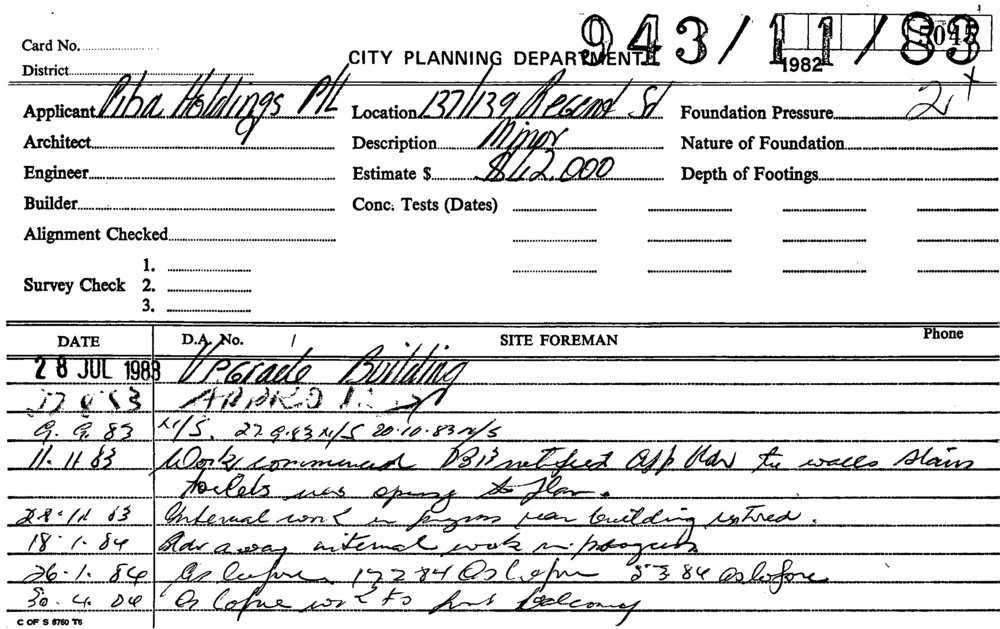 943/11/83
5045
Card No.
1982
CITY PLANNING DEPARTMENT
District
Applicant Piba Holdings P/L Location 137/139 Regent St Foundation Pressure 2
Architect Description Minor Nature of Foundation
Engineer Estimate $ $42.000 Depth of Footings
Builder Conc. Tests (Dates)
Alignment Checked
1.
Survey Check 2.
3.
DATE D.A. No. / SITE FOREMAN Phone
28 JUL 1983 Upgrade Building
9. 9. 83 N/S. 27.9.83 N/S 20.10.83 N/S
11. 11 83 Work commenced notified walls stairs
toilets
28.11 83 Internal work in progress rear building
18.1.84 away internal work in progress
26.1.84 As before. 17 2 84 As before 5 3 84 as before
30. 4. 84 As before work to front balcony
C OF S 6760 T6